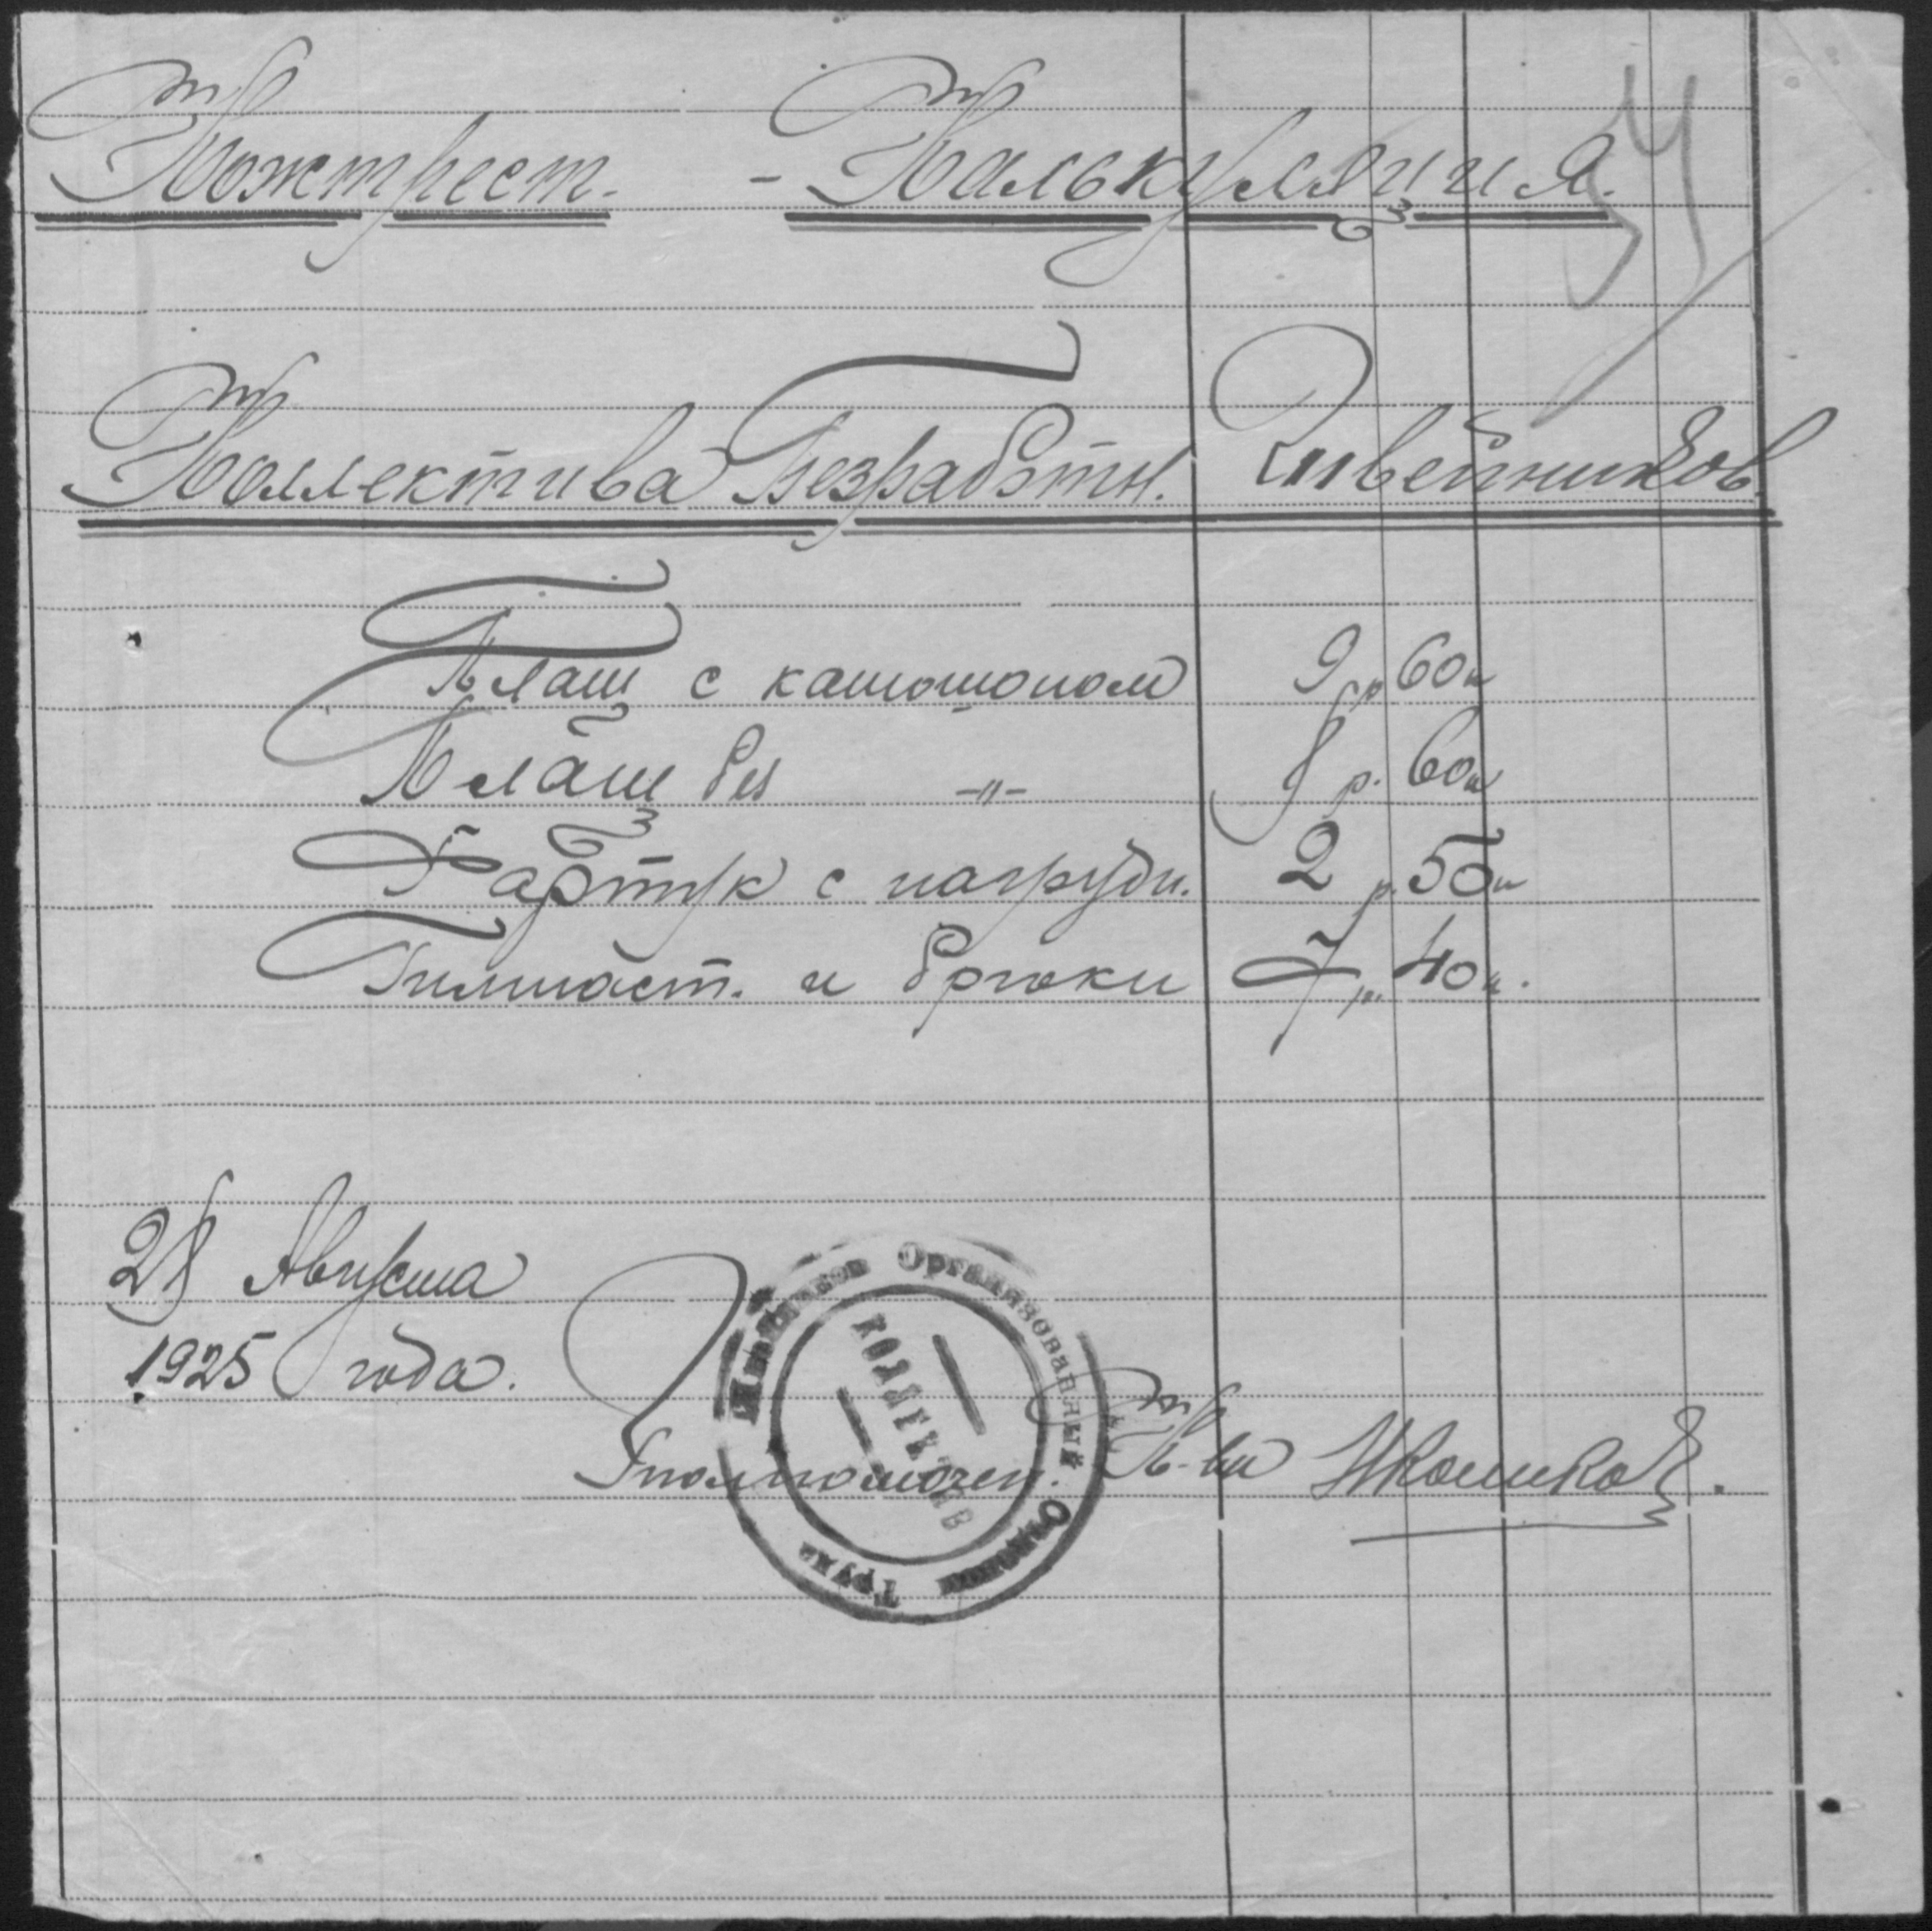 Кожтрест. - Калькуляция.
Коллектива Безработн. Швейников.
Плащ с капюшоном 9 р. 60 к
Плащ без -"- 8 р. 60 к
Фартук с нагрудн. 2 р. 50 к
Гимнаст. и брюки 7 р. 40 к.
28 Августа
1925 года.
Уполномочен. К-ва
Швейников Организованный Отделом Труда
КОЛЛЕКТИВ